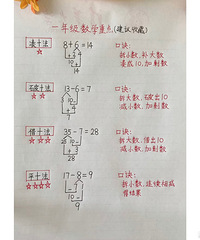 一年级数学重点(建议收藏)
凑十法
8+6=14
口诀:
拆小数,补大数
凑成10,加剩数
破十法
13-6=7
口诀:
拆大数,破出10
减小数,加剩数
借十法
35-7=28
口诀:
拆大数,借出10
减小数,加剩数
28
平十法
17-8=9
口诀:
拆小数,连续相减
得结果